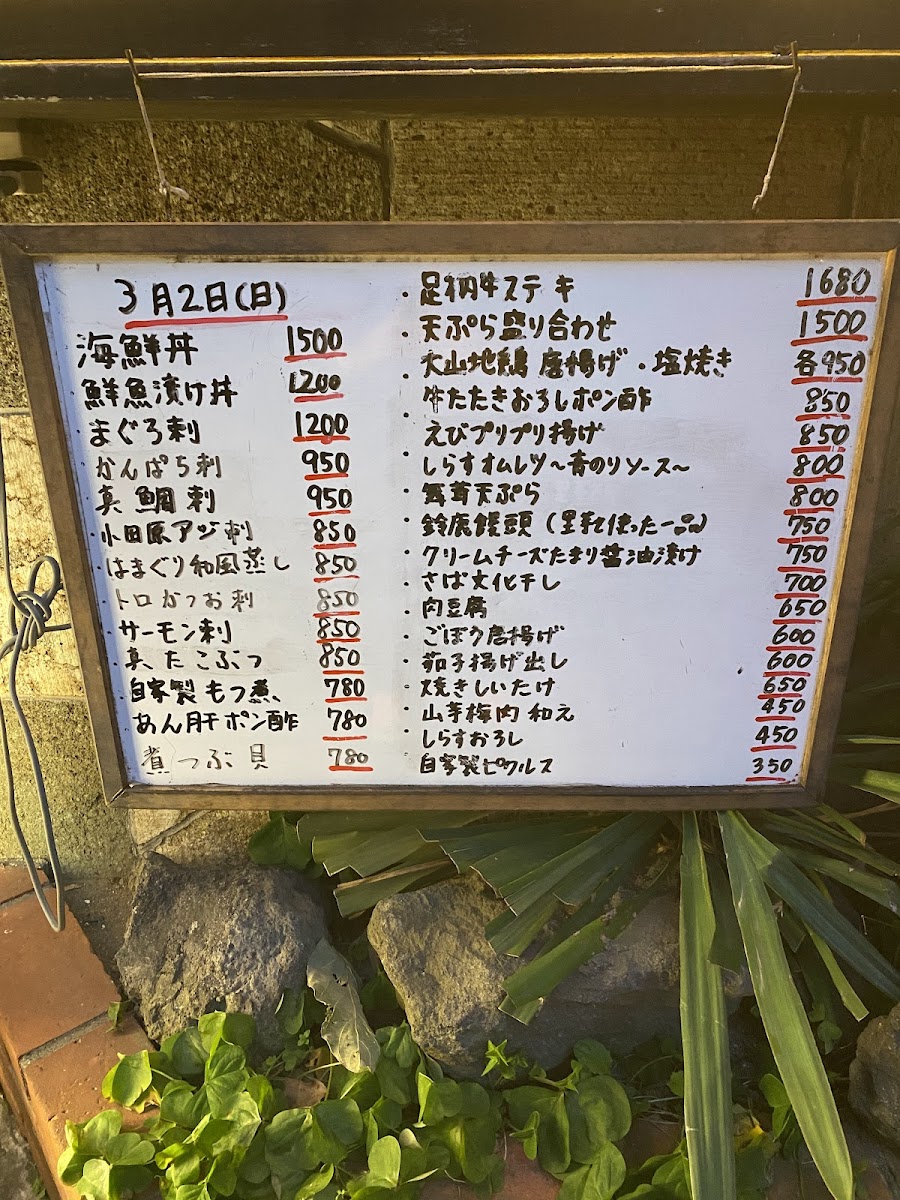 3月2日(日)
海鮮丼 1500
鮮魚漬け丼 1200
・まぐろ刺 1200
・かんぱち刺 950
・真鯛刺 950
・小田原アジ刺 850
・はまぐり和風蒸し 850
・トロかつお刺 850
・サーモン刺 850
・真たこぶつ 850
・自家製もつ煮 780
・あん肝ポン酢 780
煮つぶ貝 780
・足柄牛ステ キ 1680
・天ぷら盛り合わせ 1500
・大山地鶏 唐揚げ・塩焼き 各950
・牛たたきおろしポン酢 850
・えびプリプリ揚げ 850
・しらすオムレツ～青のりソース～ 800
・舞茸天ぷら 800
・鈴鹿饅頭(里芋を使った一品) 750
・クリームチーズたまり醤油漬け 750
・さば文化干し 700
・肉豆腐 650
・ごぼう唐揚げ 600
・茄子揚げ出し 600
・焼きしいたけ 650
・山芋梅肉和え 450
・しらすおろし 450
・自家製ピクルス 350